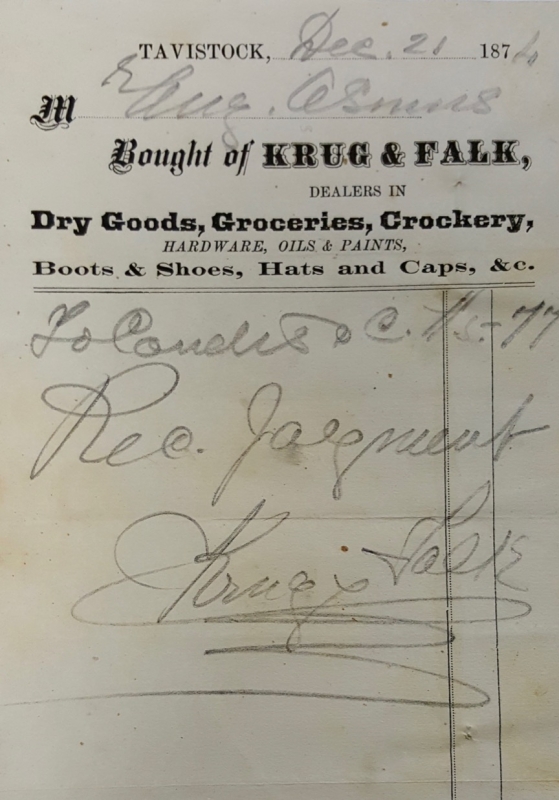 TAVISTOCK, Dec. 21 187
M Aug. Asmus
Bought of KRUG & FALK,
DEALERS IN
Dry Goods, Groceries, Crockery,
HARDWARE, OILS & PAINTS,
Boots & Shoes, Hats and Caps, &c.
To 77
Rec. Paegment
Krug Falk